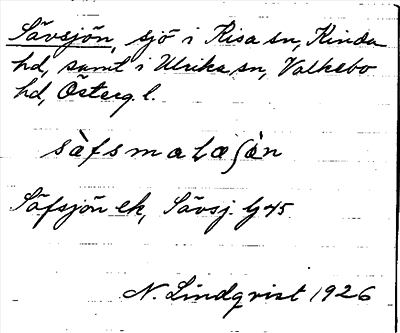 Sävsjön, sjö i Kisa sn, Kinda
hd, samt i Ulrika sn, Valkebo
hd, Österg. l.
sàfsmalaʃə̀n
Säfsjön ek, Sävsj. Gj 45
N. Lindqvist 1926